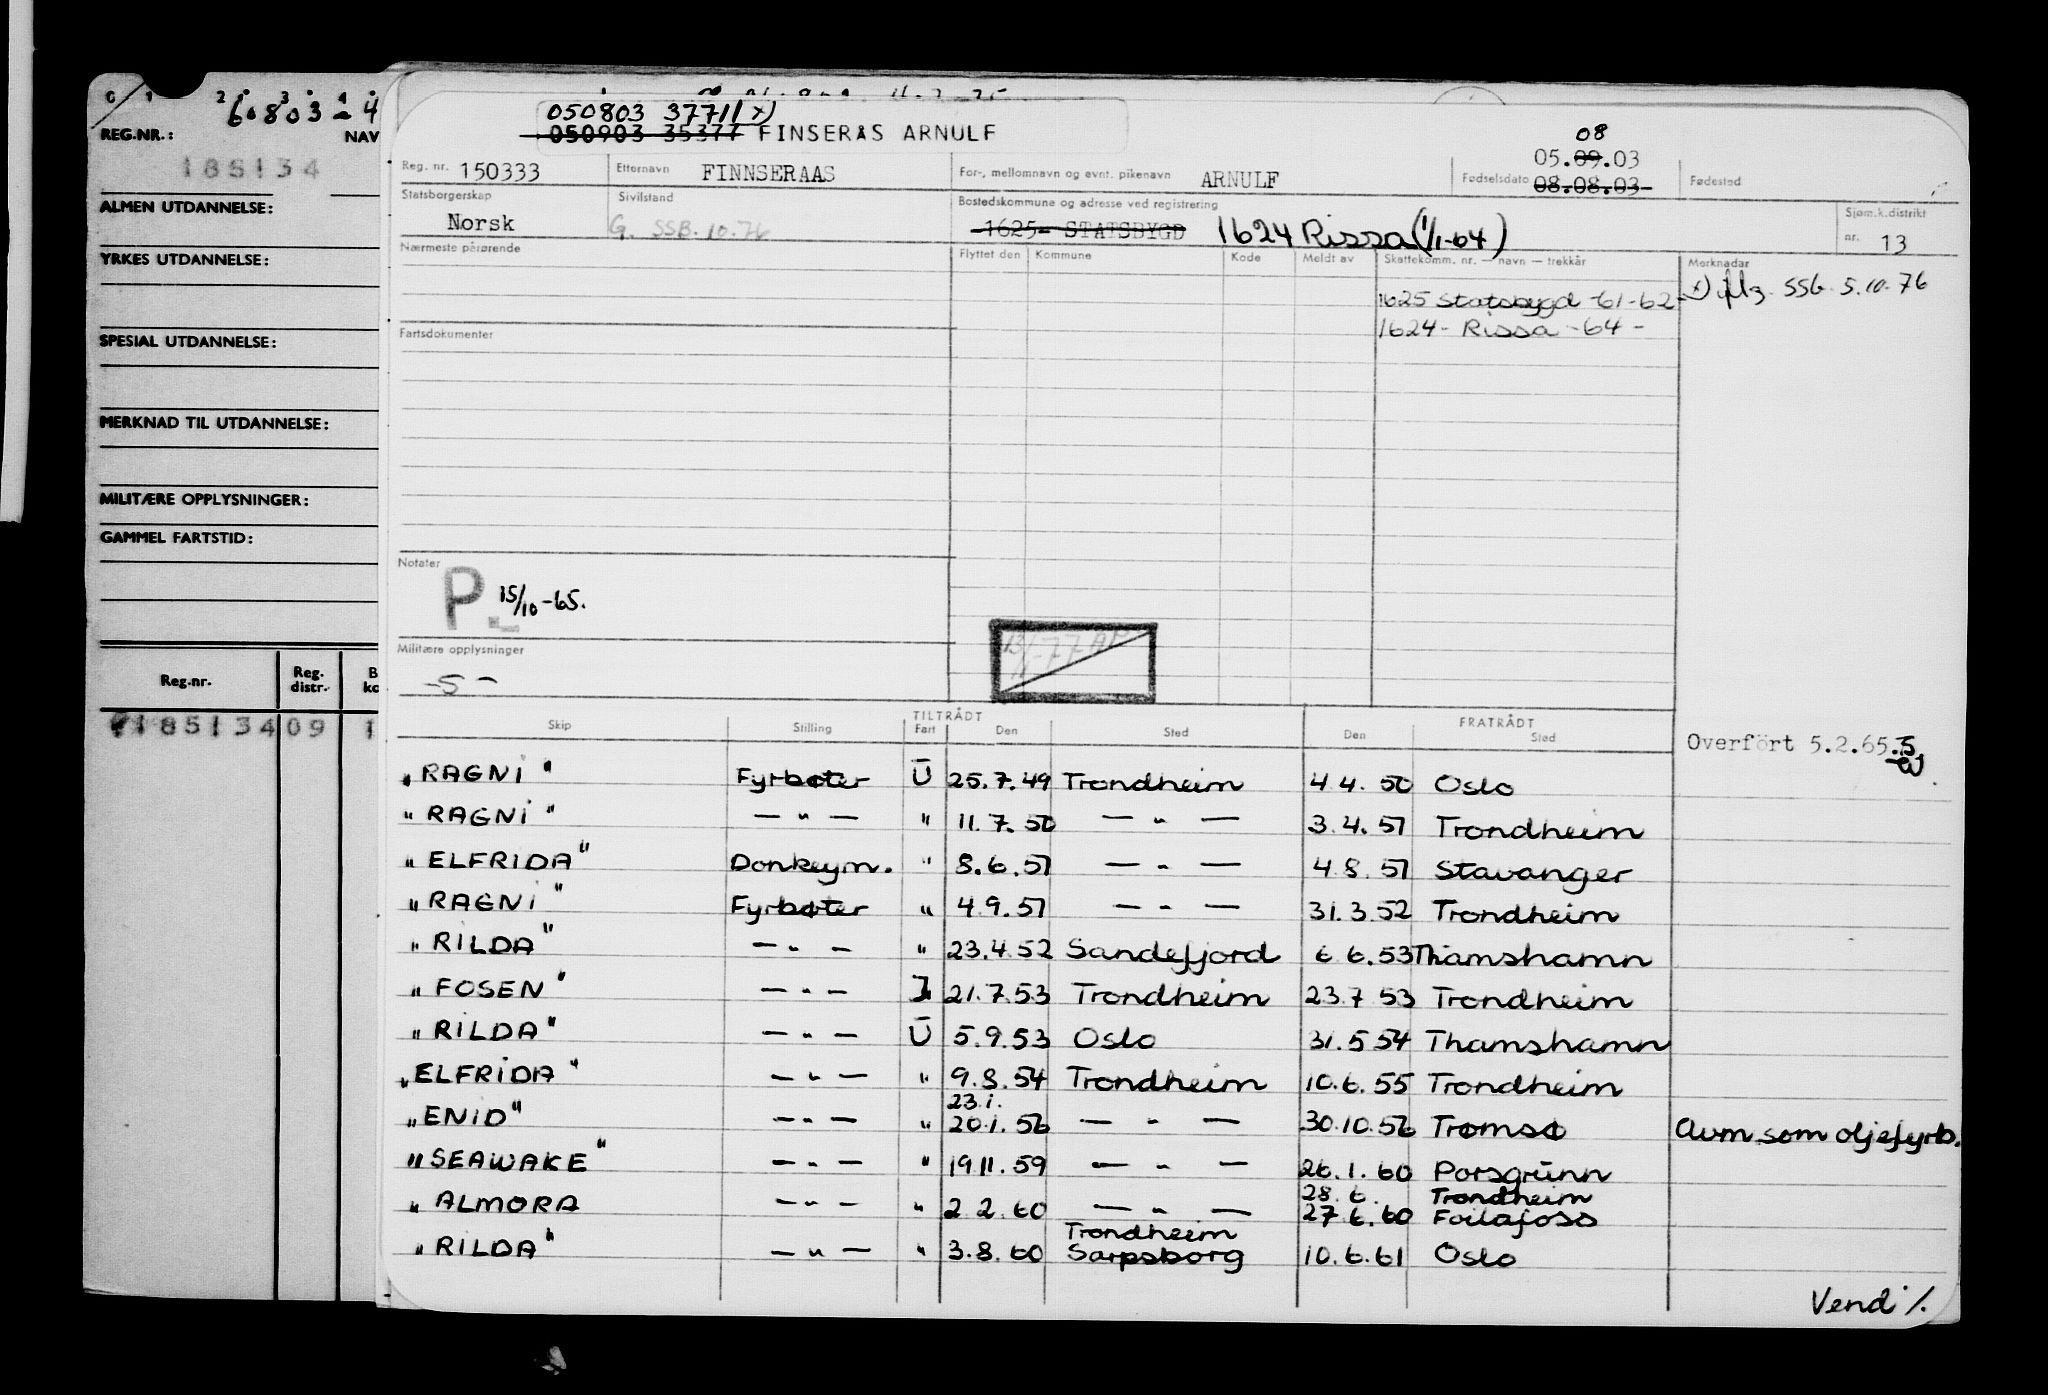 0 1 2 3 4
60803-4
REG.NR.: NAV
185134
ALMEN UTDANNELSE:
YRKES UTDANNELSE:
SPESIAL UTDANNELSE:
MERKNAD TIL UTDANNELSE:
MILITÆRE OPPLYSNINGER:
GAMMEL FARTSTID:
Reg.nr. Reg. distr. B ko
185134 09 1
050803 37711 x)
050903 35377 FINSERÅS ARNULF
Reg. nr. 150333 Etternavn FINNSERAAS For-, mellomnavn og evnt. pikenavn ARNULF Fødselsdato 08 05.09.03 08.08.03- Fødested
Statsborgerskap Norsk Sivilstand G. SSB.10.76 Bostedskommune og adresse ved registrering 1625- STATSBYGD 1624 Rissa (1/1-64) Sjøm.k.distrikt nr. 13
Nærmeste pårørende Flyttet den Kommune Kode Meldt av Skattekomm. nr. — navn — trekkår Merknader
1625 Statsbygd -61-62- x) iflg. SSB 5.10.76
1624- Rissa -64-
Fartsdokumenter
Notater
P 15/10-65.
Militære opplysninger
-5-
Skip Stilling TILTRÅDT Fart Den Sted FRATRÅDT Den Sted
Overført 5.2.65.
"RAGNI" Fyrbøter U 25.7.49 Trondheim 4.4.50 Oslo
"RAGNI" — " — " 11.7.50 — " — 3.4.51 Trondheim
"ELFRIDA" Donkeym. " 8.6.51 — " — 4.8.51 Stavanger
"RAGNI" Fyrbøter " 4.9.51 — " — 31.3.52 Trondheim
"RILDA" — " — " 23.4.52 Sandefjord 6.6.53 Thamshamn
"FOSEN" — " — I 21.7.53 Trondheim 23.7.53 Trondheim
"RILDA" — " — U 5.9.53 Oslo 31.5.54 Thamshamn
"ELFRIDA" — " — " 9.8.54 Trondheim 10.6.55 Trondheim
23.1.
"ENID" — " — " 20.1.56 — " — 30.10.56 Tromsø Avm som oljefyrb.
"SEAWAKE" — " — " 19.11.59 — " — 26.1.60 Porsgrunn
28.6. Trondheim
"ALMORA — " — " 2.2.60 — " — 27.6.60 Follafoss
Trondheim
"RILDA" — " — " 3.8.60 Sarpsborg 10.6.61 Oslo
Vend ./.